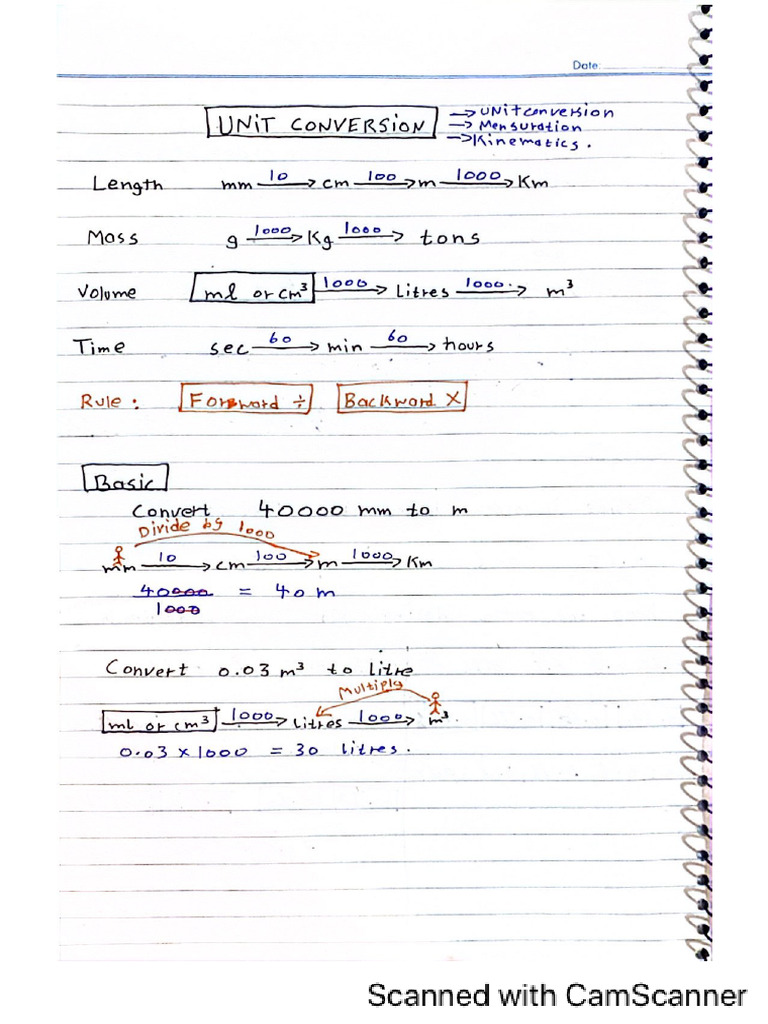 Date:
UNIT CONVERSION → UNit conversion
→ Mensuration
→ Kinematics.
Length mm 10→ cm 100→ m 1000→ Km
Mass g 1000→ Kg 1000→ tons
Volume ml or cm³ 1000→ Litres 1000→ m³
Time sec 60→ min 60→ hours
Rule: Forward ÷ Backward X
Basic
Convert 40000 mm to m
Divide by 1000
mm 10→ cm 100→ m 1000→ Km
40000/1000 = 40 m
Convert 0.03 m³ to litre
Multiply
ml or cm³ 1000→ Litres 1000→ m³.
0.03 × 1000 = 30 litres.
Scanned with CamScanner